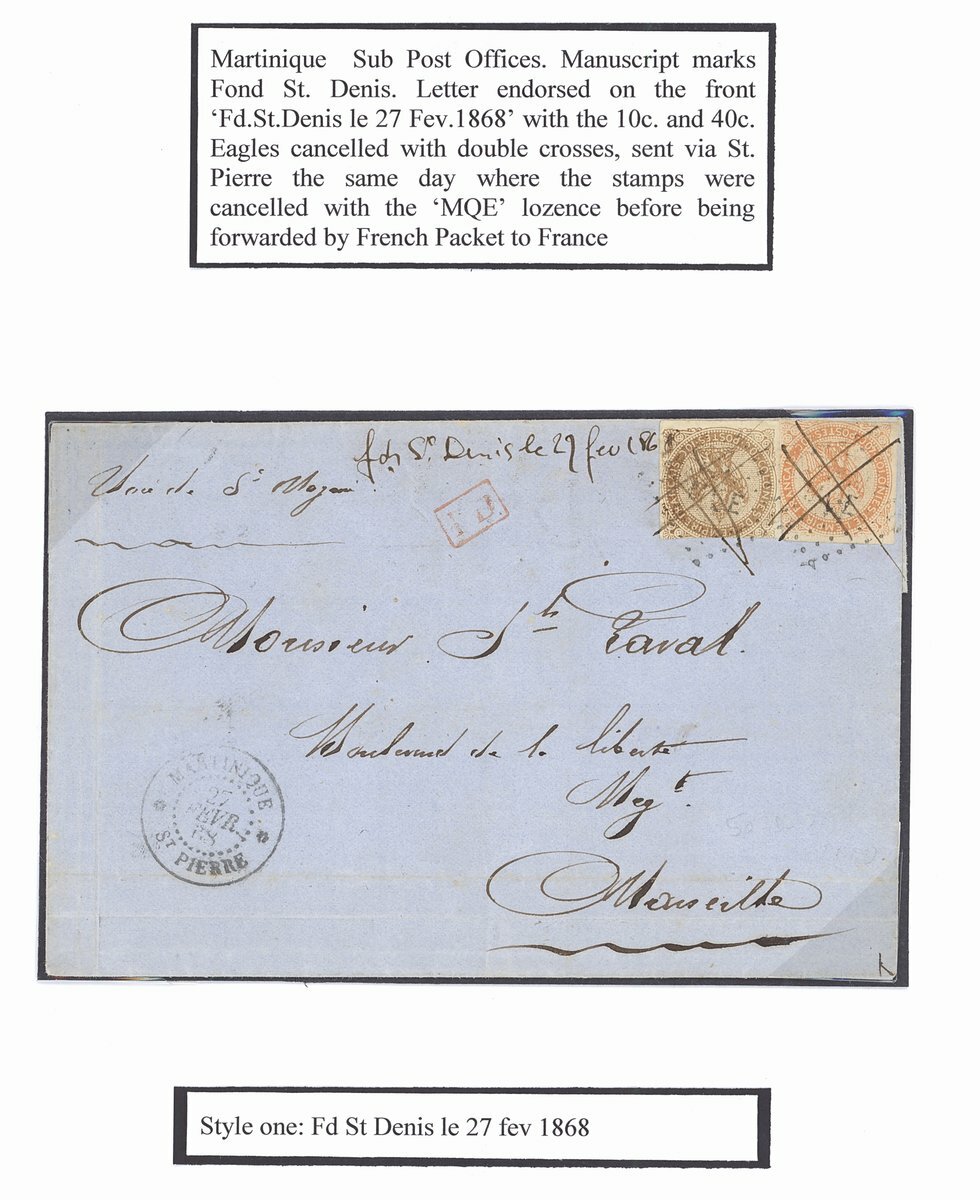 Martinique Sub Post Offices. Manuscript marks
Fond St. Denis. Letter endorsed on the front
‘Fd.St.Denis le 27 Fev.1868’ with the 10c. and 40c.
Eagles cancelled with double crosses, sent via St.
Pierre the same day where the stamps were
cancelled with the ‘MQE’ lozence before being
forwarded by French Packet to France
fd St. Denis le 27 fev 186
Voie de St
P.D.
Monsieur Sh Laval.
Boulevard de la liberté
Negt.
Marseille
MARTINIQUE
27
FEVR.
68
ST PIERRE
Style one: Fd St Denis le 27 fev 1868